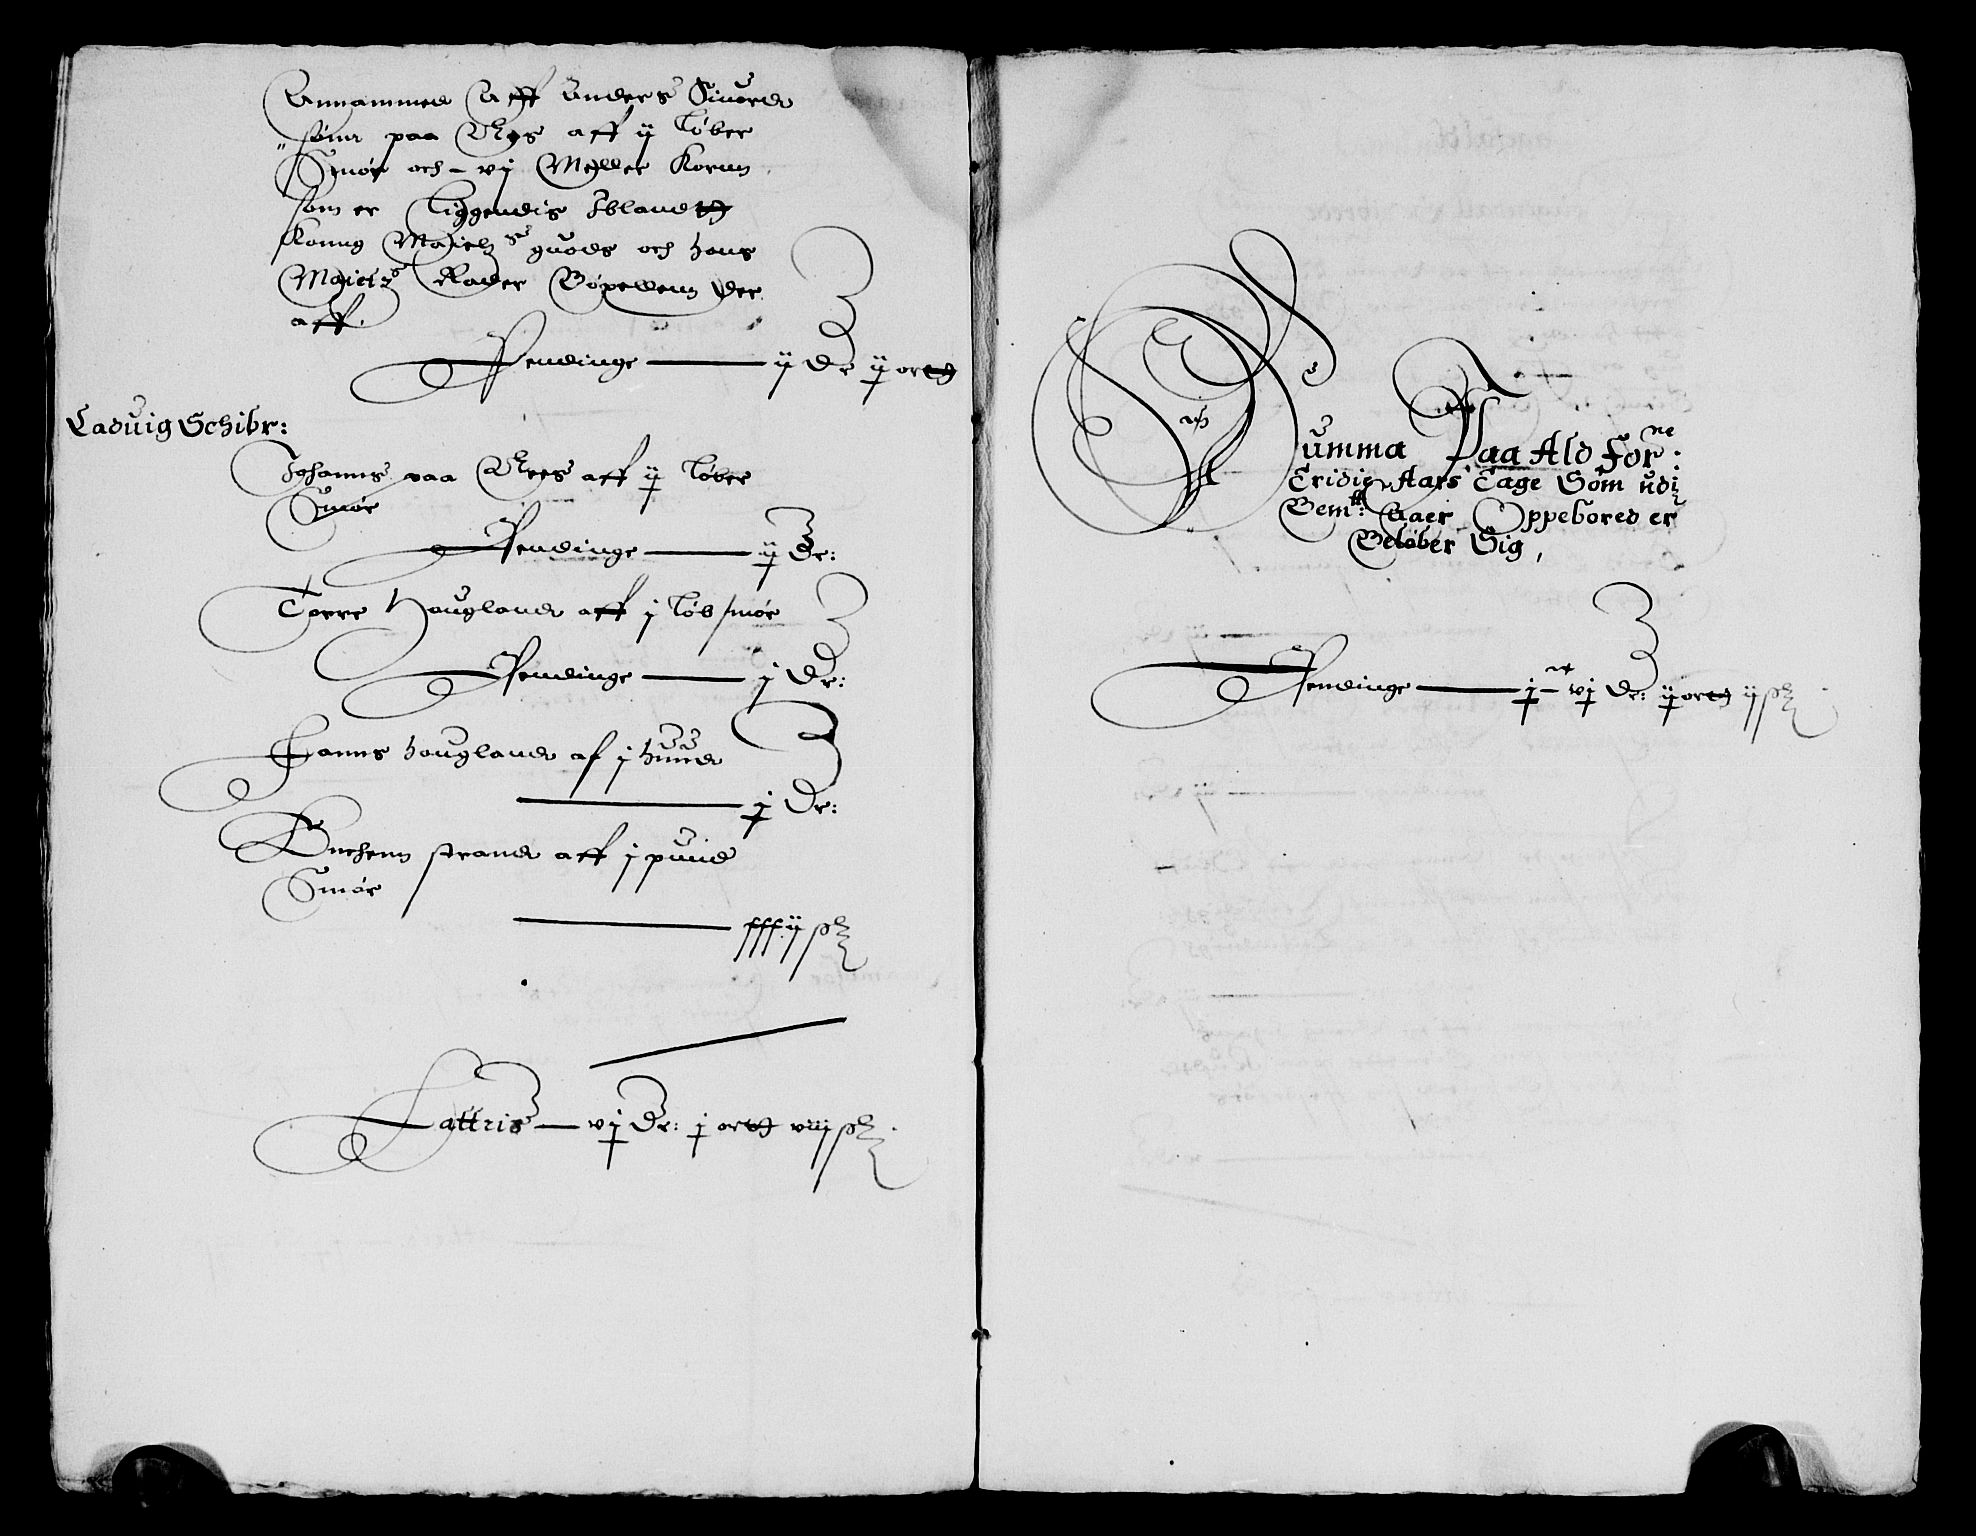 Annammed Aff Anders Siuord
sønn paa Rgs aff ij løber
Smør och – vj Meller Kornn
som er liggendis Iblandt
Konng Maietz guods och hans
Maietz Rader Bøxellenn der
aff.
Pendinge — ij Dr ij ort
Laduig Schibr:
Johanns paa Rees aff ij løber
Smør
Pendinge — ij Dr:
Torre hougland aff j løb smør
Pendinge — j Dr:
Hanns hougland af j hund
— j Dr:
Enchenn strand aff j pund
Smør
— ij ß
Lattris — vj Dr: j ort viij ß
Summa Paa Ald For:ne
Tridie Aars Tage Som udj
Bem:te Aaer Oppebored er
Beløber Sig,
Pendinge — j c vj Dr: ij ort ij ß